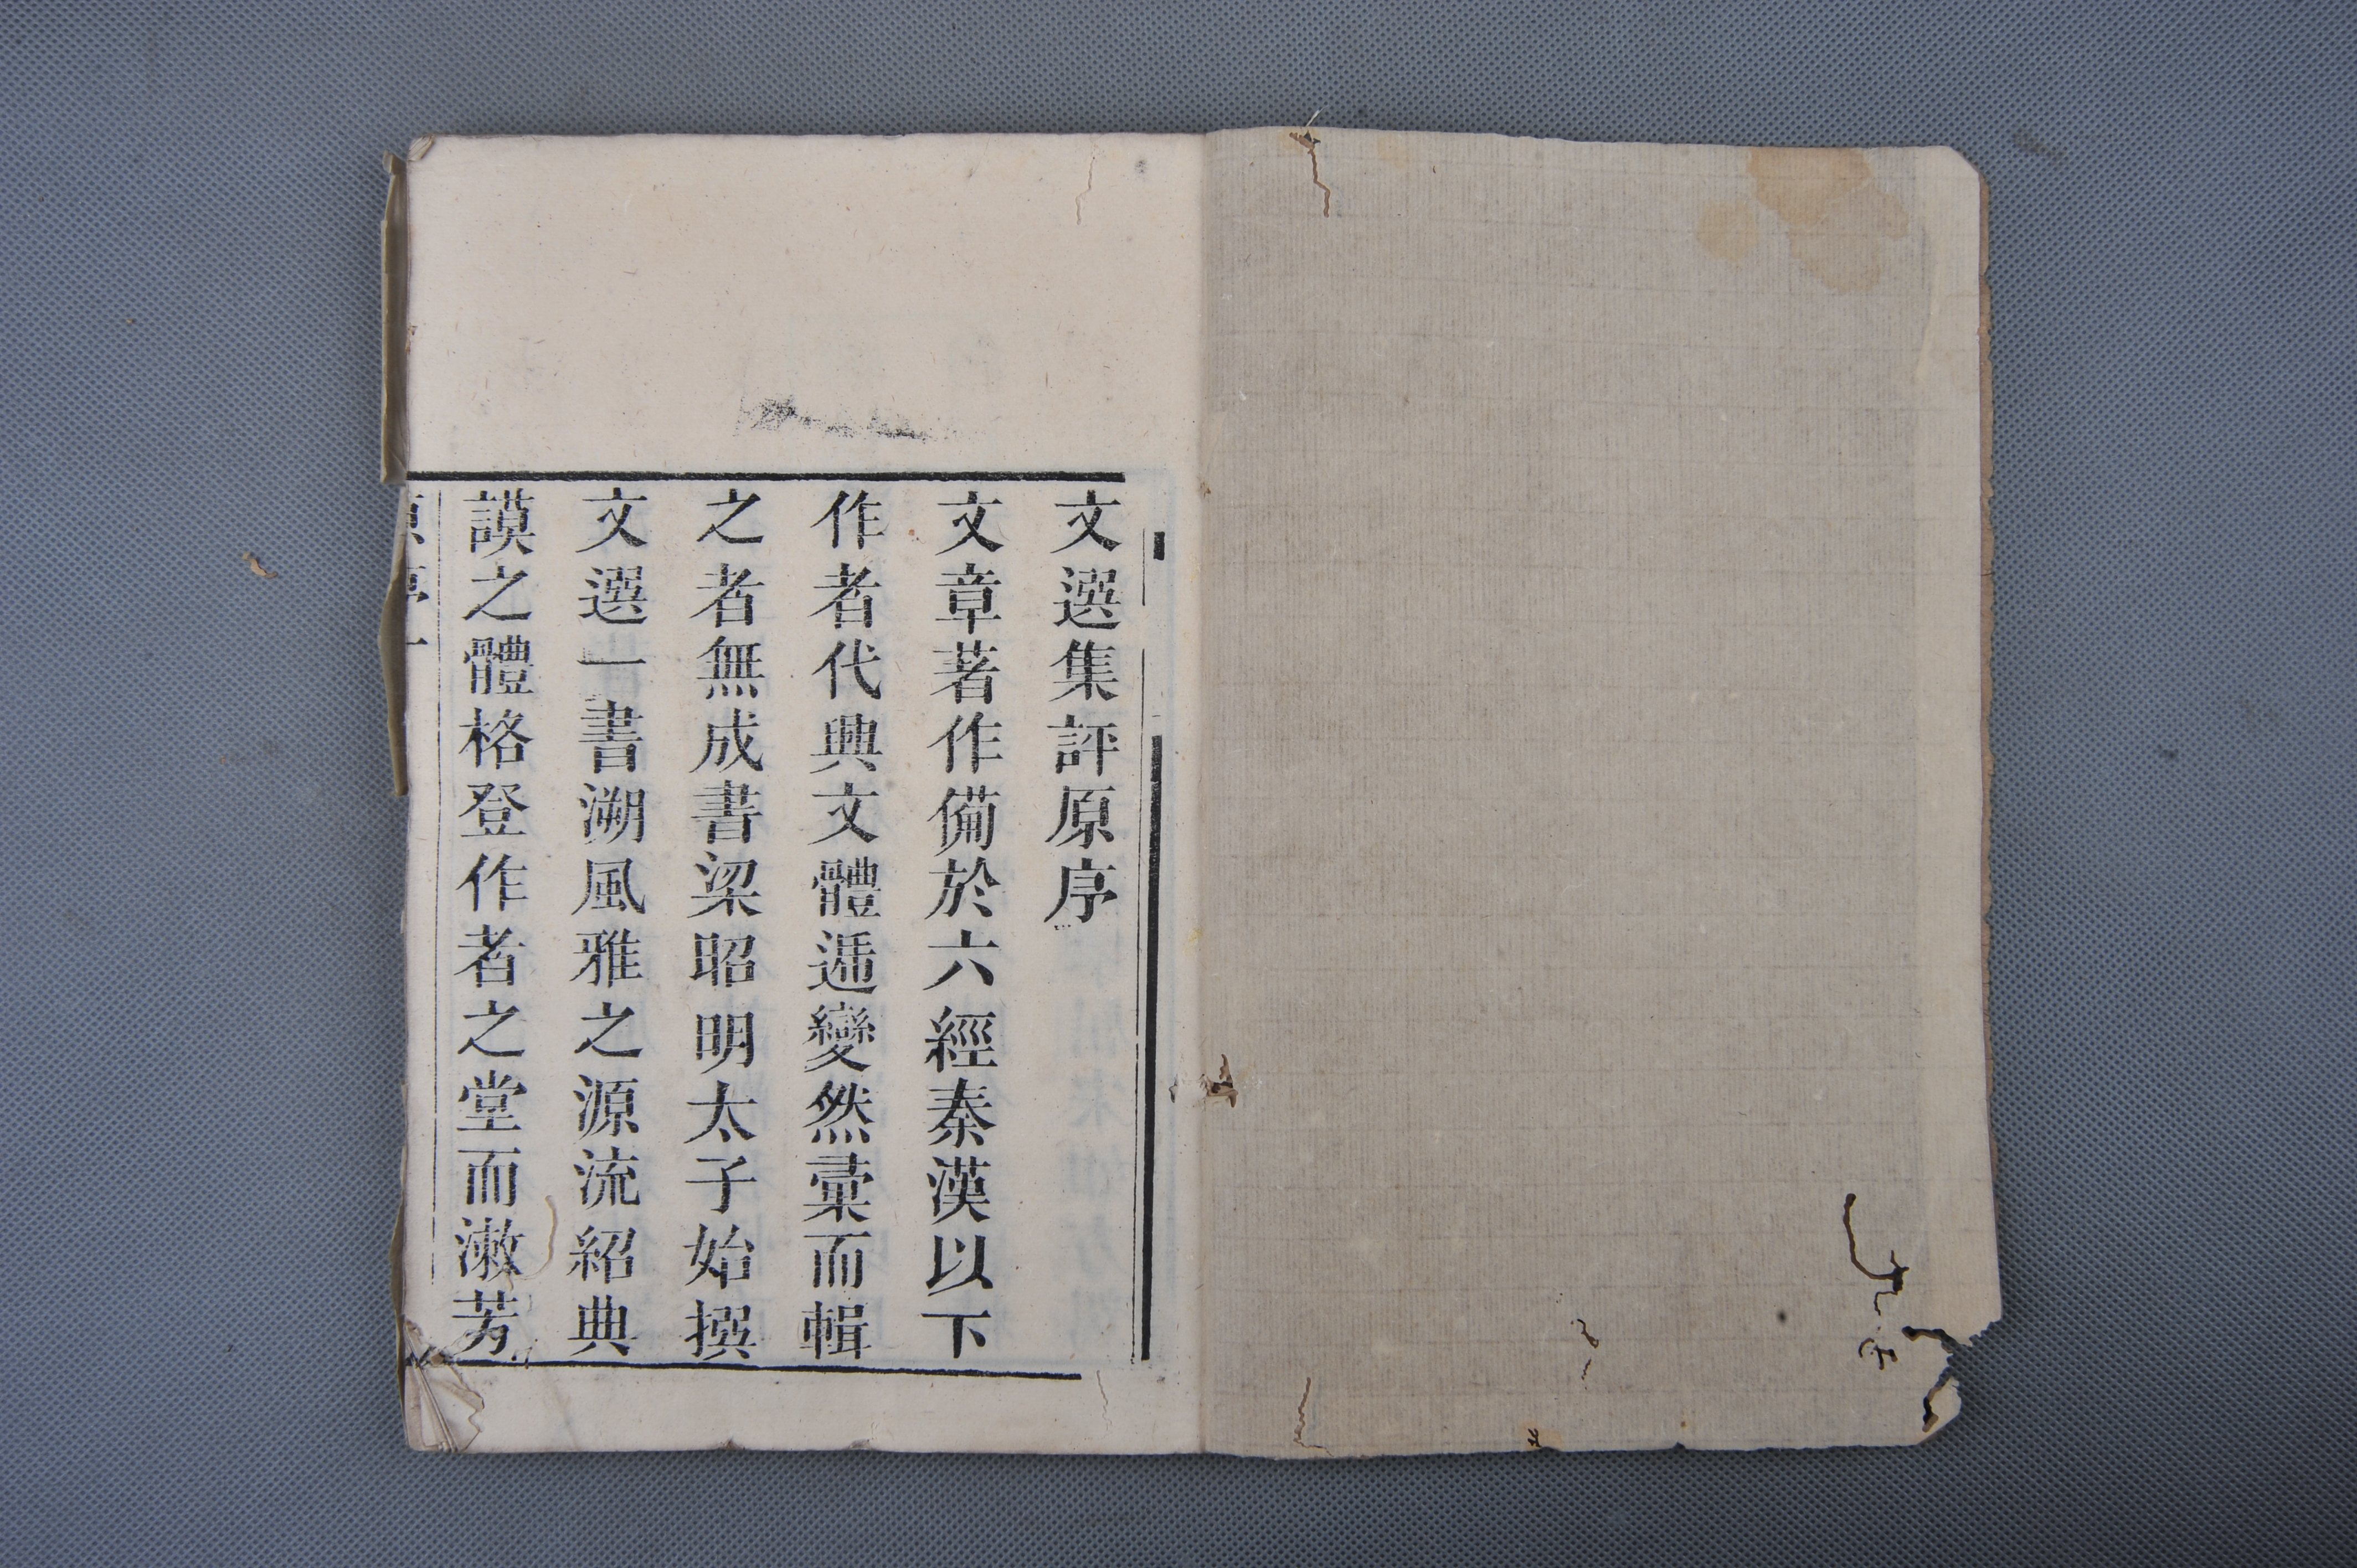 文選集評原序
文章著作備於六經秦漢以下
作者代興文體遞變然彙而輯
之者無成書梁昭明太子始撰
文選一書溯風雅之源流紹典
謨之體格登作者之堂而漱芳